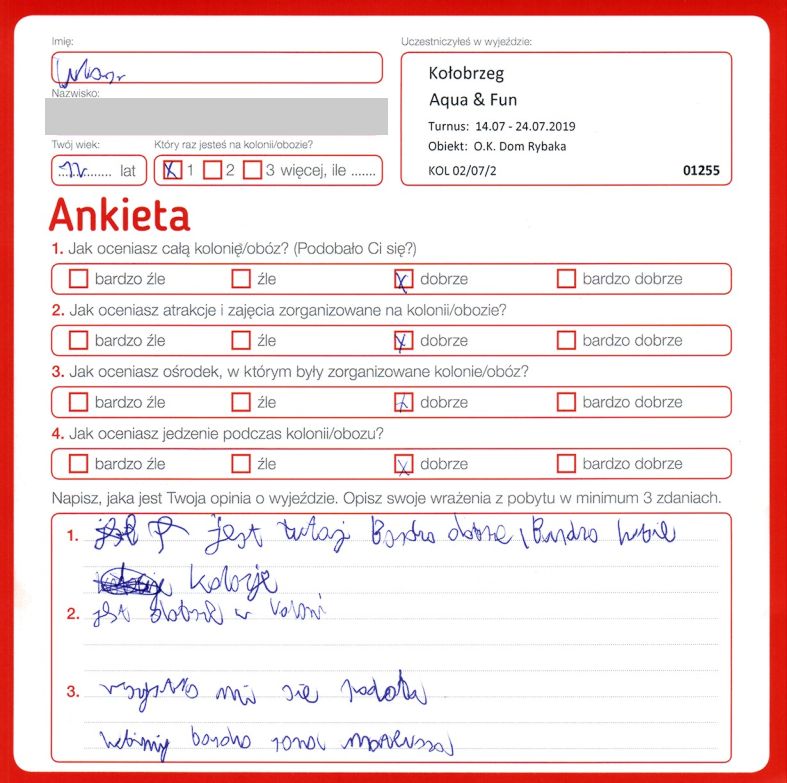 Imię:
Uczestniczyłeś w wyjeździe:
Nazwisko:
Kołobrzeg
Aqua & Fun
Turnus: 14.07 - 24.07.2019
Obiekt: O.K. Dom Rybaka
KOL 02/07/2 01255
Twój wiek: Który raz jesteś na kolonii/obozie?
lat X 1 2 3 więcej, ile .......
Ankieta
1. Jak oceniasz całą kolonię/obóz? (Podobało Ci się?)
bardzo źle źle X dobrze bardzo dobrze
2. Jak oceniasz atrakcje i zajęcia zorganizowane na kolonii/obozie?
bardzo źle źle X dobrze bardzo dobrze
3. Jak oceniasz ośrodek, w którym były zorganizowane kolonie/obóz?
bardzo źle źle X dobrze bardzo dobrze
4. Jak oceniasz jedzenie podczas kolonii/obozu?
bardzo źle źle X dobrze bardzo dobrze
Napisz, jaka jest Twoja opinia o wyjeździe. Opisz swoje wrażenia z pobytu w minimum 3 zdaniach.
1. jest tutaj Bardzo dobrze, Bardzo lubie
kolonje
2. jest dobrze w koloni
3. wszystko mi się podoba
bardzo